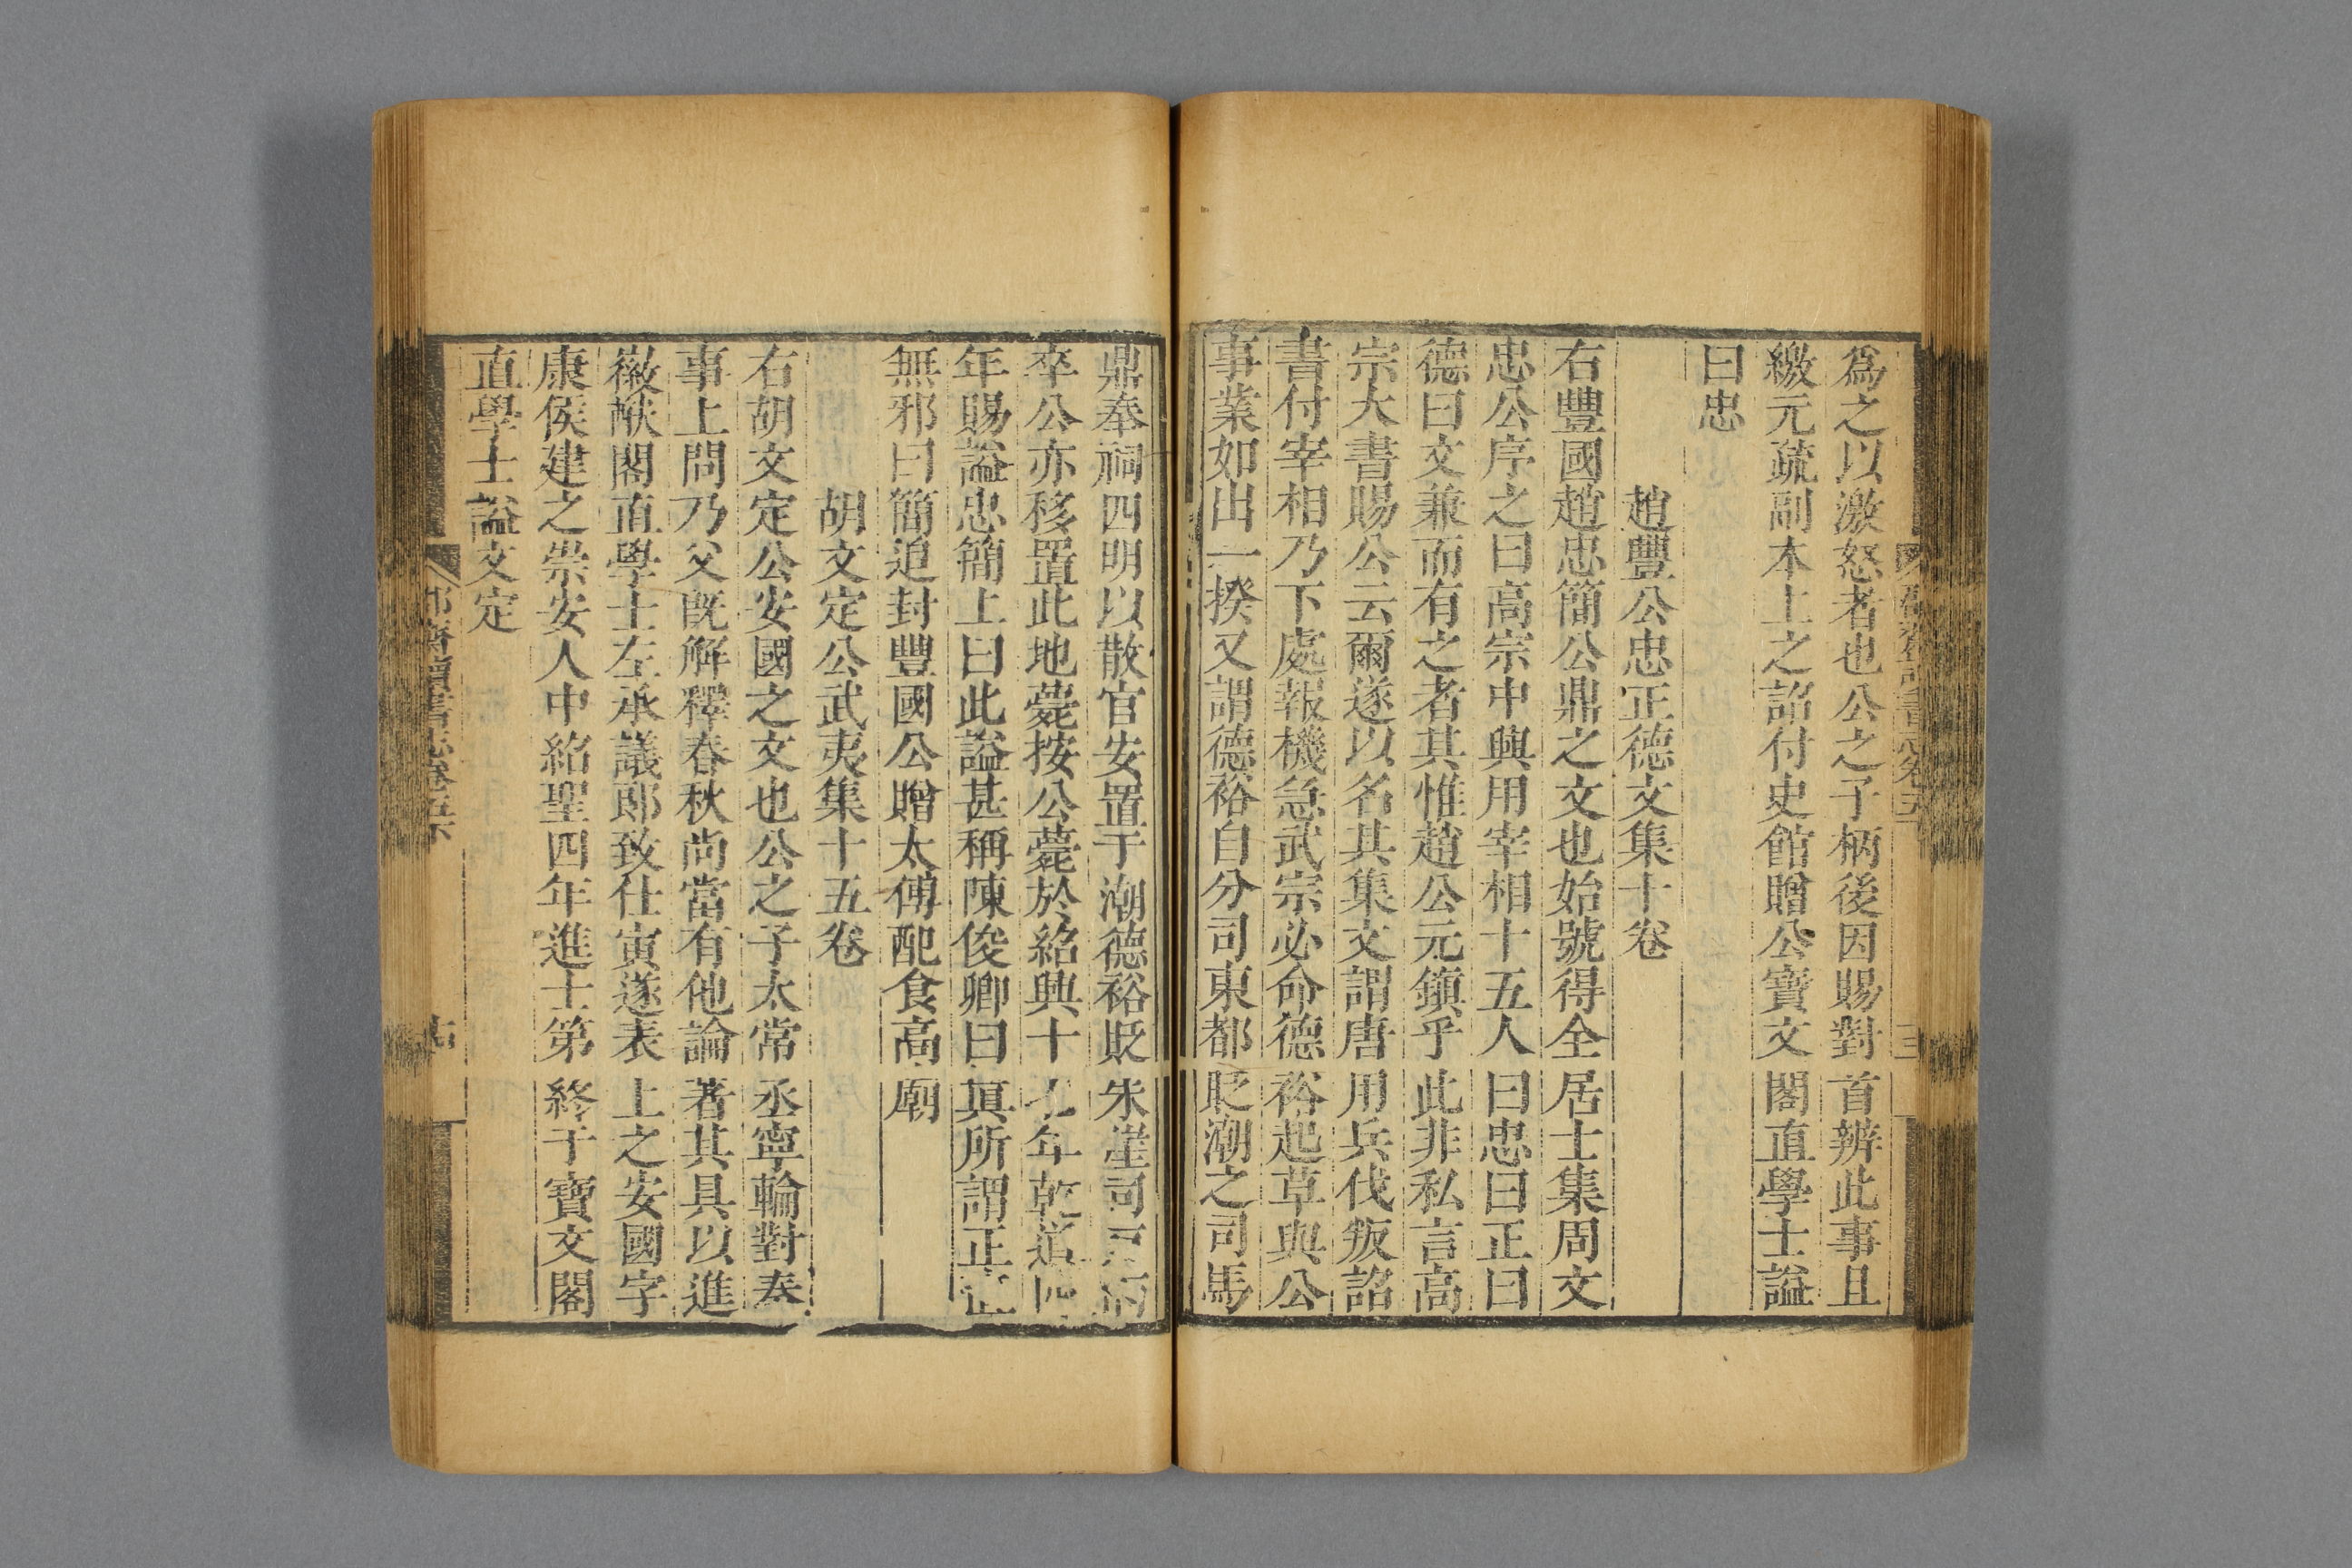 爲之以激怒者也公之子柄後因賜對首辨此事且
繳元疏副本上之詔付史館贈公寶文閣直學士謚
曰忠
趙豐公忠正德文集十卷
右豐國趙忠簡公鼎之文也始號得全居士集周文
忠公序之曰高宗中興用宰相十五人曰忠曰正曰
德曰文兼而有之者其惟趙公元鎭乎此非私言高
宗大書賜公云爾遂以名其集文謂唐用兵伐叛詔
書付宰相乃下處報機急武宗必命德裕起草與公
事業如出一揆又謂德裕自分司東都貶潮之司馬
鼎奉祠四明以散官安置于潮德裕貶朱崖司戶而
卒公亦移置此地薨按公薨於紹興十七年乾道四
年賜謚忠簡上曰此謚甚稱陳俊卿曰眞所謂正直
無邪曰簡追封豐國公贈太傅配食高廟
胡文定公武夷集十五卷
右胡文定公安國之文也公之子太常丞寧輪對奏
事上問乃父既解釋春秋尚當有他論著其具以進
徽猷閣直學士左承議郎致仕寅遂表上之安國字
康侯建之崇安人中紹聖四年進士第終于寶文閣
直學士謚文定
郡齋讀書志卷五下